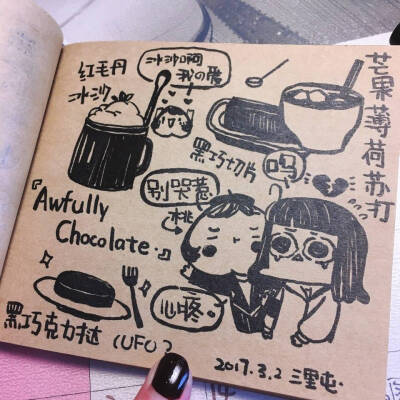 红毛丹
冰沙
冰沙啊
我の爱
芒果薄荷苏打
黑巧切片
呜
别哭惹
桃
『Awfully
Chocolate.』
心疼。
黑巧克力挞
(UFO)
2017.3.2 三里屯.